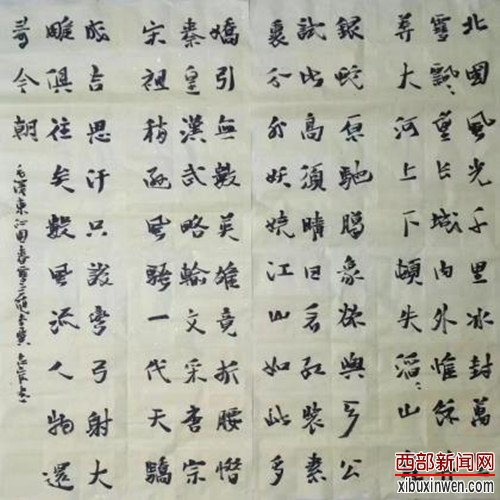 北國風光千里冰封萬
雪飄望长城内外惟餘
莽大河上下頓失滔〻山
銀蛇原馳腊象欲與天公
試比高須晴日看红裝素
裹分外妖娆江山如此多
嬌引無數英雄竞折腰惜
秦皇漢武略輸文采唐宗
宋祖稍遜風騷一代天驕
成吉思汗只識彎弓射大
雕俱往矣數風流人物還
看今朝
毛澤東沁园春雪
西部新闻网
xibuxinwen.com